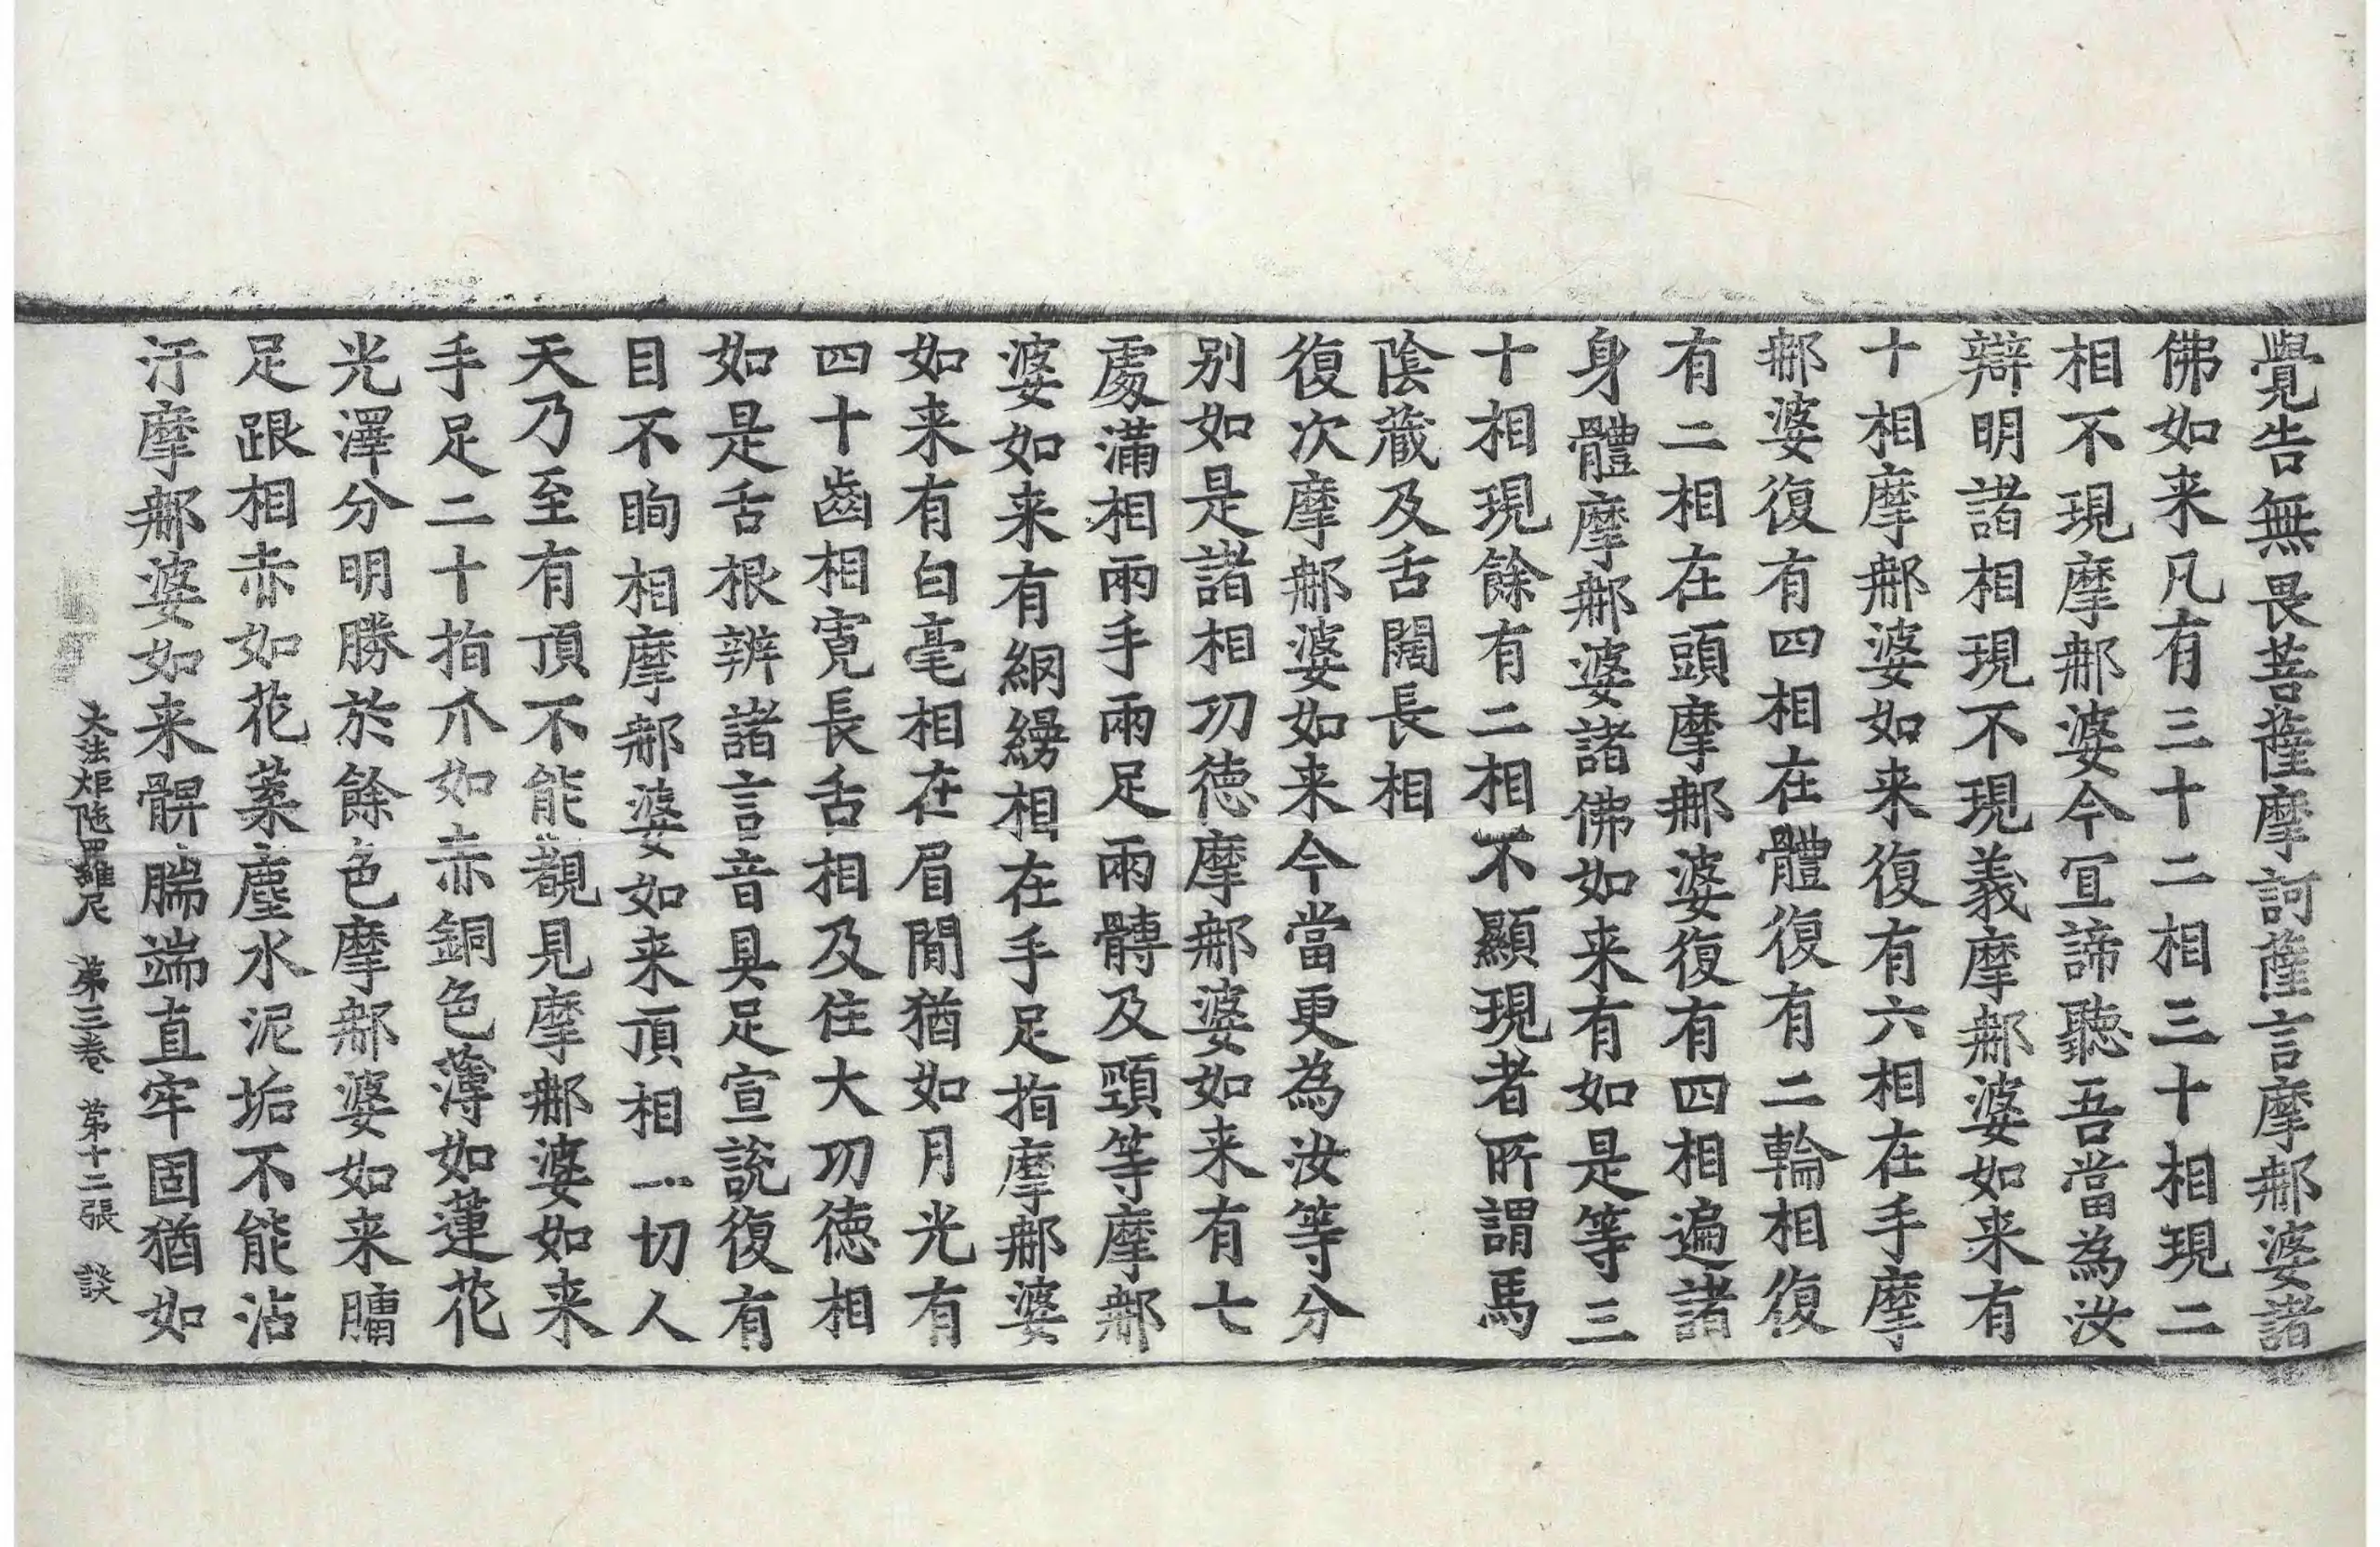 覺告無畏菩薩摩訶薩言摩㝹婆諸
佛如来凡有三十二相三十相現二
相不現摩㝹婆今冝諦聽吾當為汝
辯明諸相現不現義摩㝹婆如来有
十相摩㝹婆如来復有六相在手摩
㝹婆復有四相在體復有二輪相復
有二相在頭摩㝹婆復有四相遍諸
身體摩㝹婆諸佛如来有如是等三
十相現餘有二相不顯現者所謂馬
陰藏及舌闊長相
復次摩㝹婆如来今當更為汝等分
别如是諸相功徳摩㝹婆如来有七
處滿相兩手兩足兩髆及頸等摩㝹
婆如来有網縵相在手足指摩㝹婆
如来有白毫相在眉間猶如月光有
四十齒相寛長舌相及住大功徳相
如是舌根辨諸言音具足宣說復有
目不眴相摩㝹婆如来頂相一切人
天乃至有頂不能覩見摩㝹婆如来
手足二十指爪如赤銅色薄如蓮花
光澤分明勝於餘色摩㝹婆如来𦟛
足跟相赤如花蘂塵水泥垢不能沾
汙摩㝹婆如来髀腨端直牢固猶如
大法炬陁羅尼　第三卷　第十二張　談